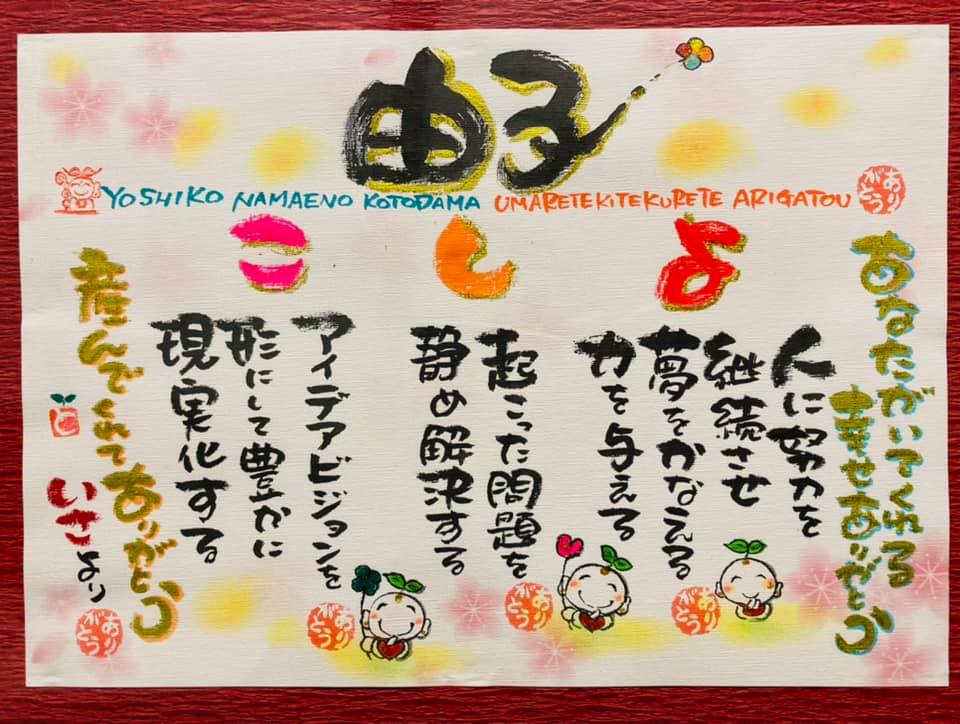 由子
YOSHIKO NAMAENO KOTODAMA UMARETEKITEKURETE ARIGATOU
ありがとう
あなたがいてくれる
幸せありがとう
よ
人に努力を
継続させ
夢をかなえる
力を与える
し
起こった問題を
静め解決する
こ
アイデアビジョンを
形にして豊かに
現実化する
産んでくれて
ありがとう
いさより
ありがとう
ありがとう
ありがとう
ありがとう